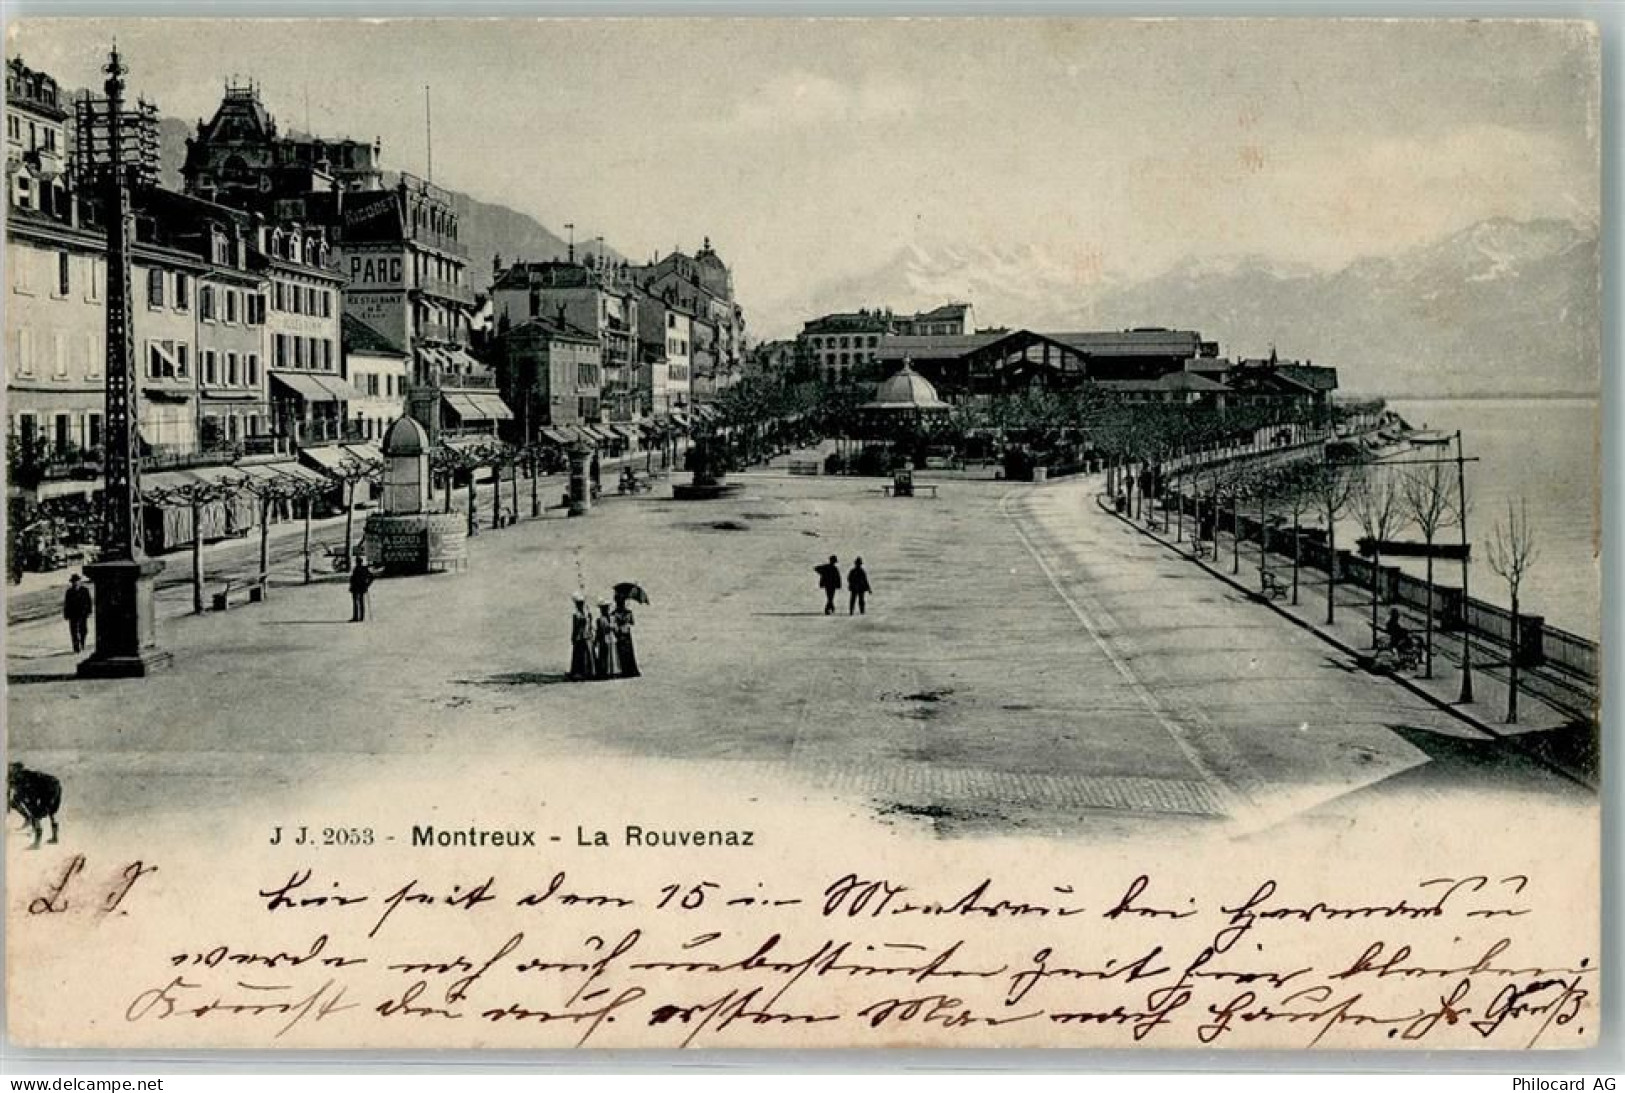 RICODET
PARC
RESTAURANT
J J. 2053 - Montreux - La Rouvenaz
L J. Bin seit dem 15 in Montreux bei Hermanns u
werde noch auf unbestimmte Zeit hier bleiben.
Kommst du auch ersten Mai nach Hause. Hr Gruß.
delcampe.net
Philocard AG